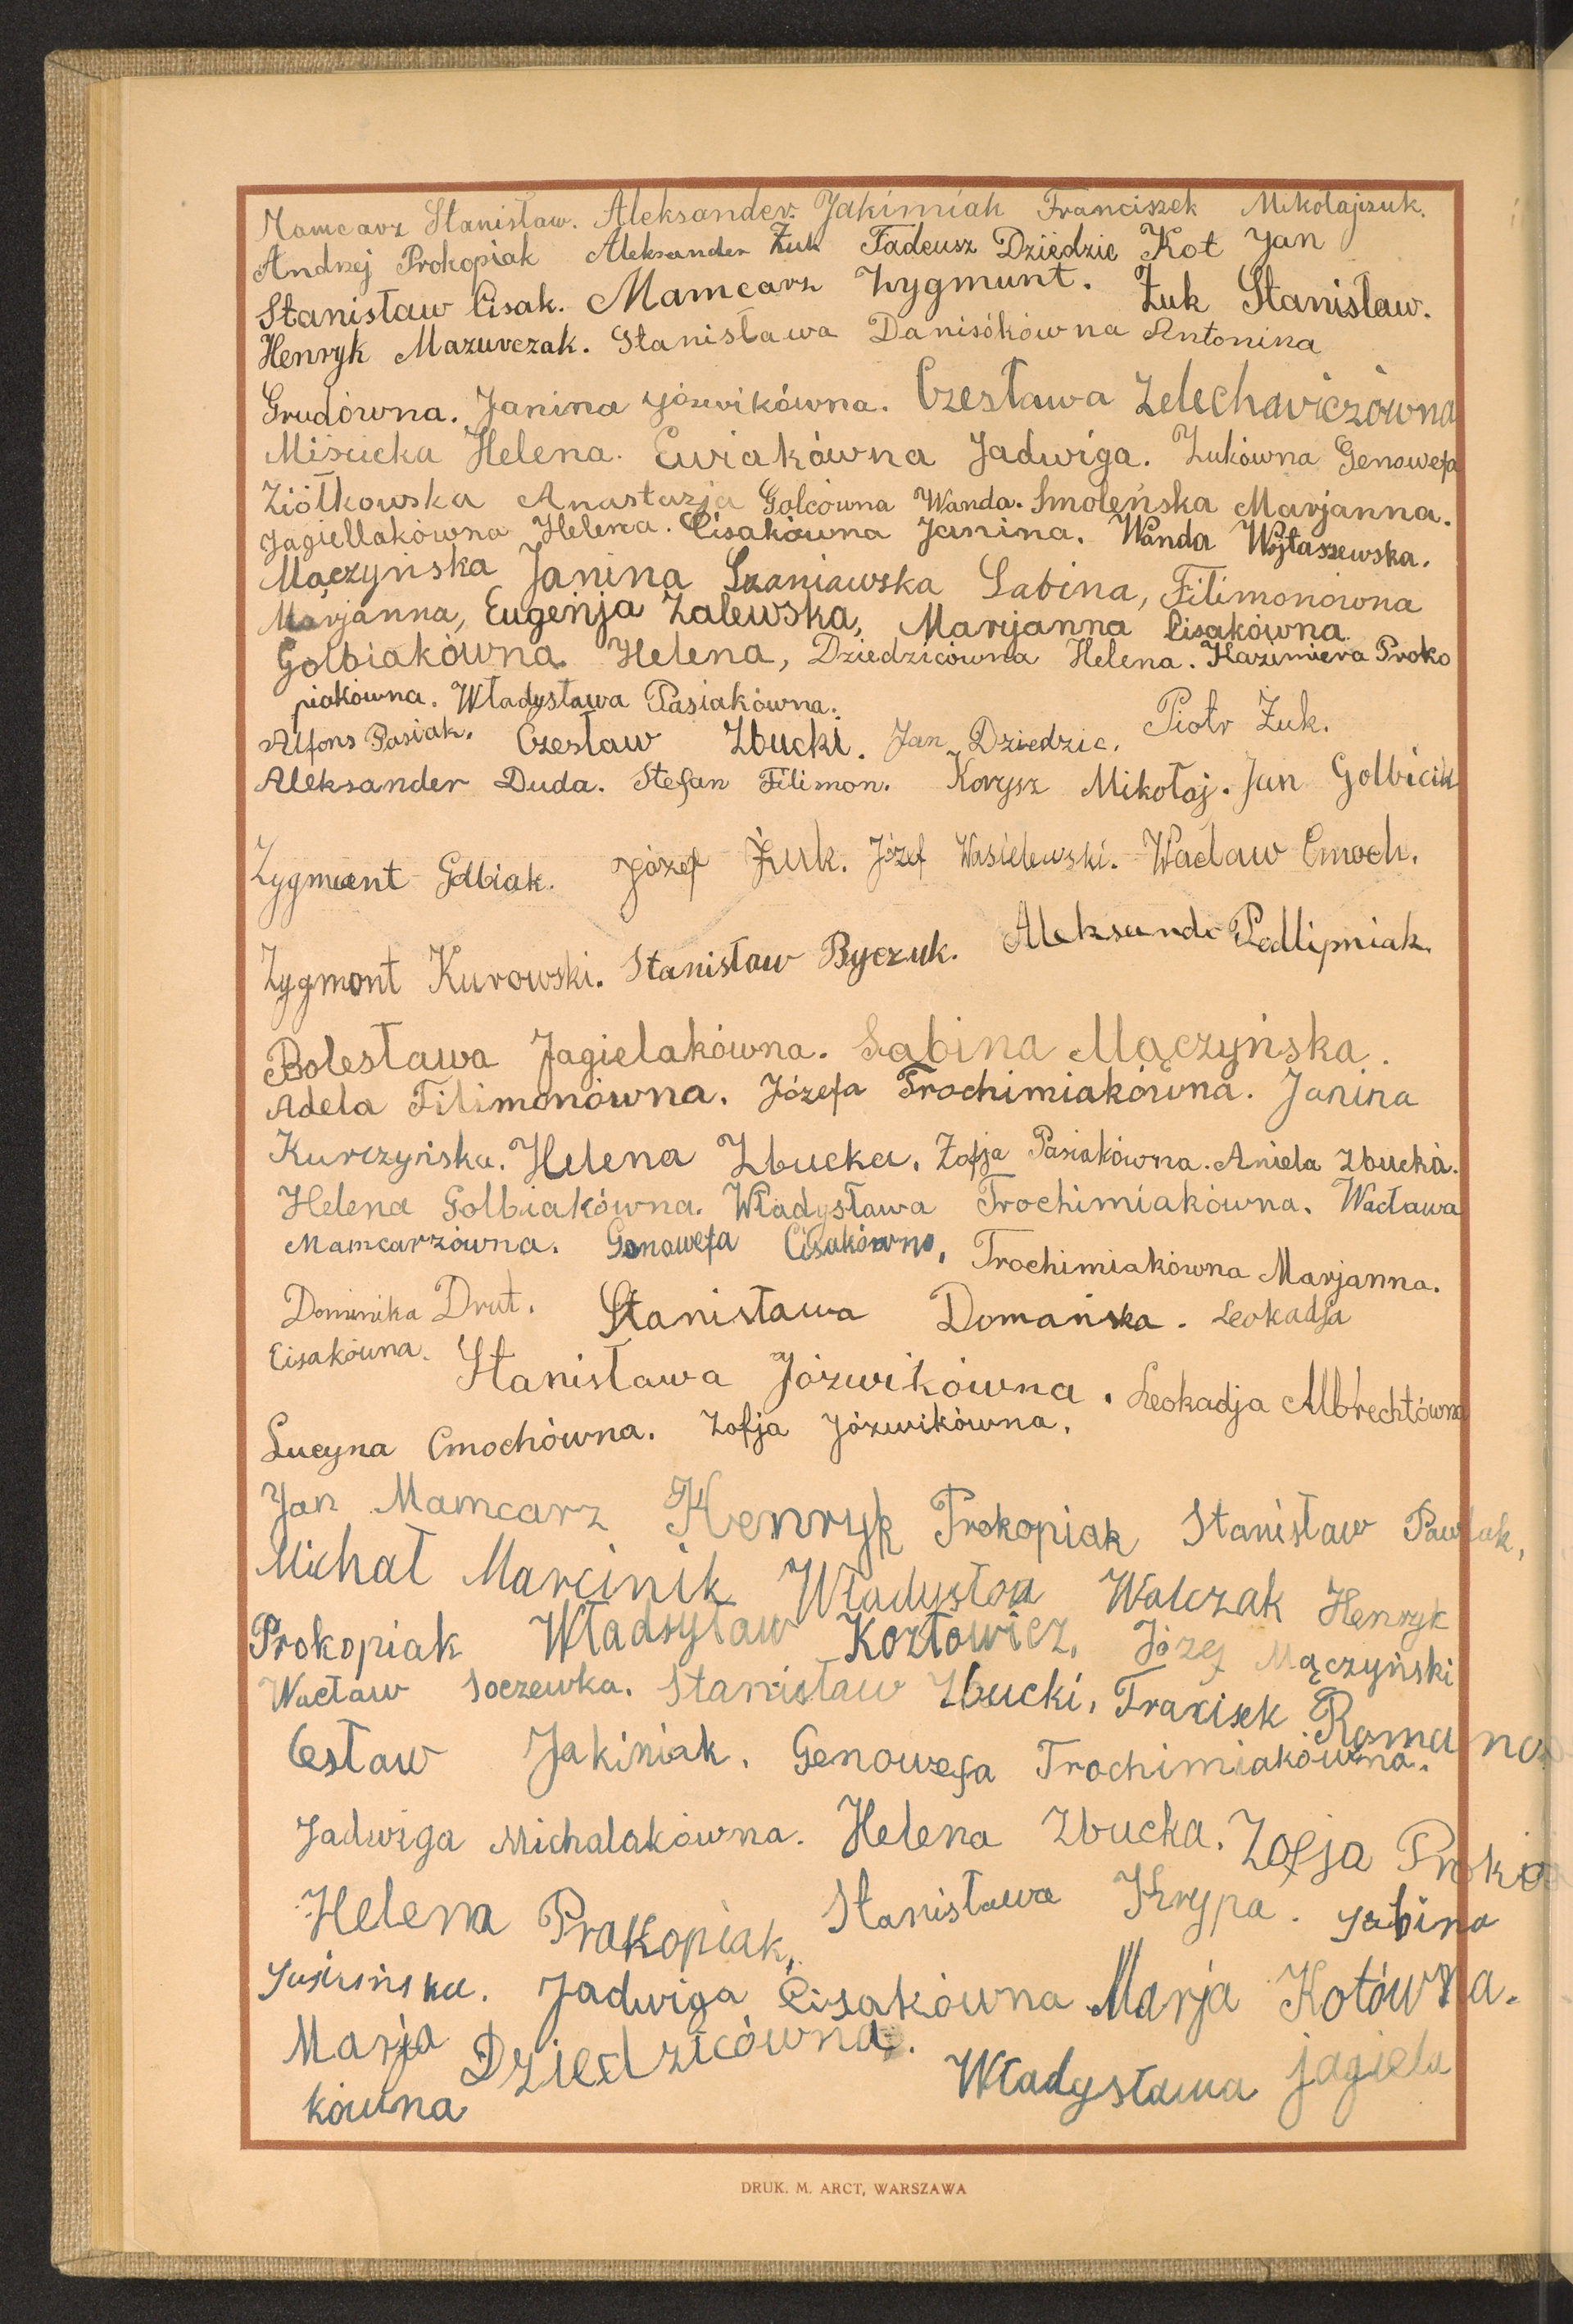 Mamcarz Stanisław. Aleksander Jakimiak Franciszek Mikołajczuk.
Andrzej Prokopiak Aleksander Żuk Tadeusz Dziedzic Kot Jan
Stanisław Cisak. Mamcarz Zygmunt. Żuk Stanisław.
Henryk Mazurczak. Stanisława Danisókówna Antonina
Grudówna. Janina Józwikówna. Czesława Zelechowiczówna
Miścicka Helena. Ćwiakówna Jadwiga. Żukówna Genowefa
Ziółkowska Anastazja Golcówna Wanda. Smoleńska Marjanna.
Jagiellakówna Helena. Cisakówna Janina. Wanda Wojtaszewska.
Mączyńska Janina Szaniawska Sabina, Filimonówna
Marjanna, Eugenja Zalewska, Marjanna Cisakówna
Golbiakówna Helena, Dziedzicówna Helena. Kazimiera Proko
piakówna. Władysława Pasiakówna.
Alfons Pasiak. Czesław Zbucki. Jan Dziedzic. Piotr Żuk.
Aleksander Duda. Stefan Filimon. Korysz Mikołaj. Jan Golbicik
Zygmunt Golbiak. Józef Żuk. Józef Wasielewski. Wacław Cmoch.
Zygmont Kurowski. Stanisław Byczuk. Aleksande Podlipniak.
Bolesława Jagielakówna. Sabina Mączyńska.
Adela Filimonówna. Józefa Trochimiakówna. Janina
Kurczyńska. Helena Zbucka. Zofja Pasiakówna. Aniela Zbucka.
Helena Golbiakówna. Władysława Trochimiakówna. Wacława
Mamcarzówna. Genowefa Cisakówna, Trochimiakówna Marjanna.
Dominika Drut. Stanisława Domańska. Leokadja
Cisakówna. Stanisława Józwikówna. Leokadja Albrechtówna
Lucyna Cmochówna. Zofja Józwikówna.
Jan Mamcarz Henryk Prokopiak Stanisław Pawluk,
Michał Marcinik Władysłoa Walczak Henryk
Prokopiak Władsyław Kozłowicz, Józef Mączyński
Wacław Soczewka. Stanisław Zbucki, Fracisek Romano
Cesław Jakiniak. Genowefa Trochimiakówna.
Jadwiga Michalakówna. Helena Zbucka. Zofja Proko
Helena Prokopiak, Stanisława Krypa. Sabina
Jasińska. Jadwiga Cisakówna Marja Kotówna.
Marja Dziedzicówna. Władysława Jagiela
kówna
DRUK. M. ARCT, WARSZAWA